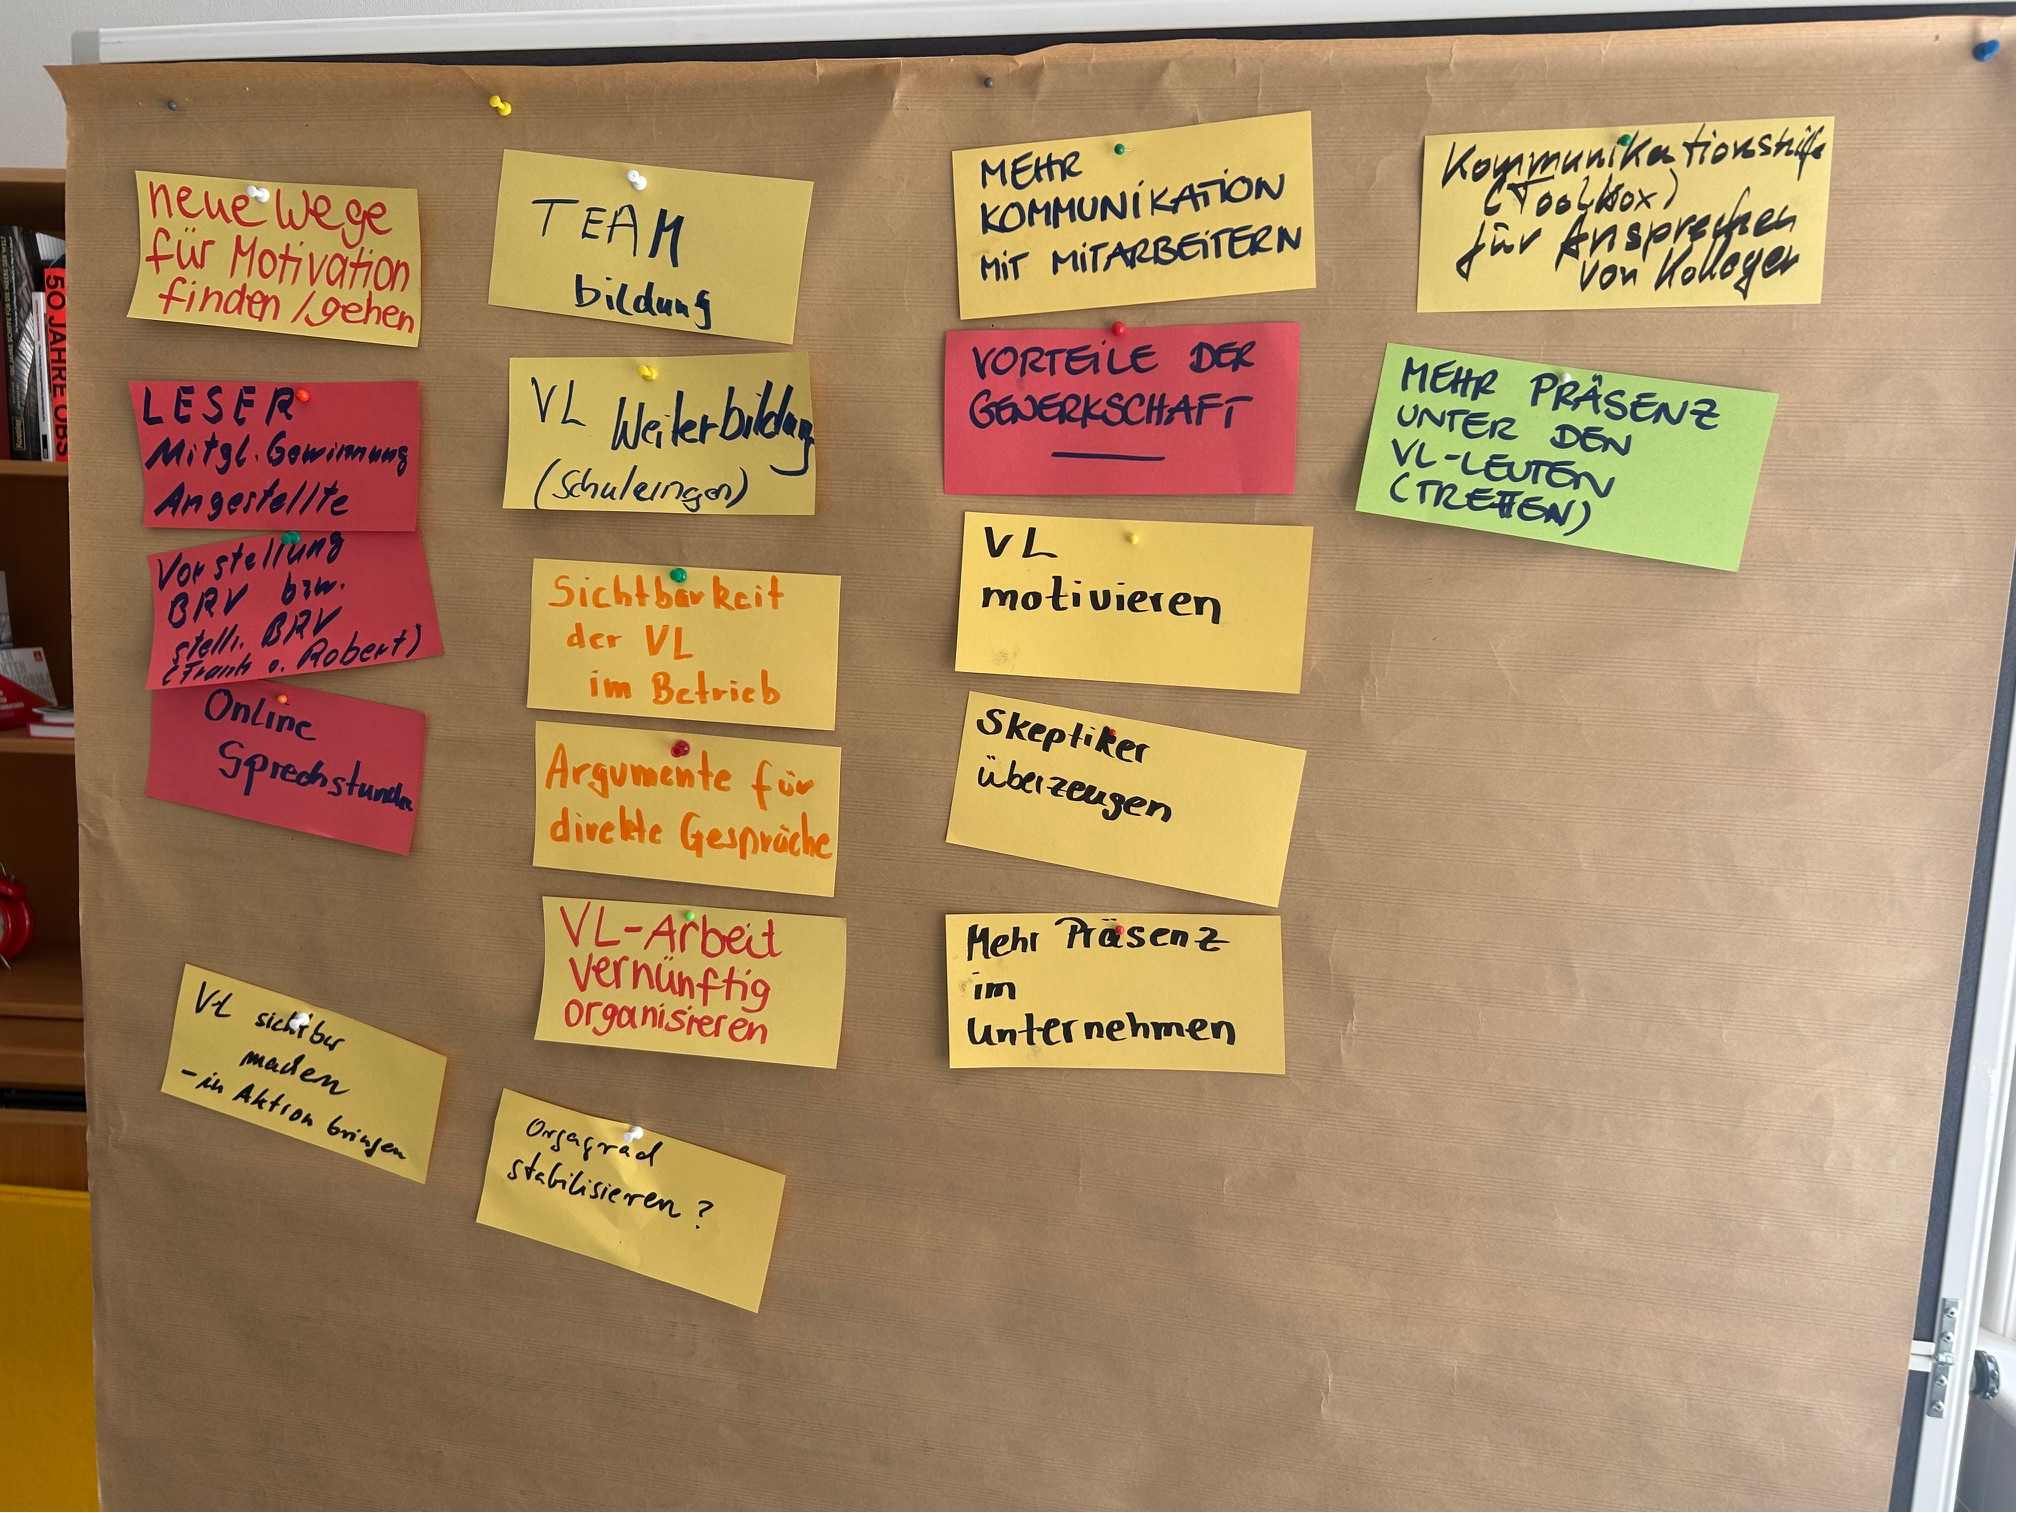 neue Wege
für Motivation
finden / gehen
LESER
Mitgl. Gewinnung
Angestellte
Vorstellung
BRV bzw.
stellv. BRV
(Frank o. Robert)
Online
Sprechstunden
VL sichtbar
machen
- in Aktion bringen
TEAM
bildung
VL Weiterbildung
(Schulungen)
Sichtbarkeit
der VL
im Betrieb
Argumente für
direkte Gespräche
VL-Arbeit
vernünftig
organisieren
Orgagrad
stabilisieren?
MEHR
KOMMUNIKATION
MIT MITARBEITERN
VORTEILE DER
GEWERKSCHAFT
VL
motivieren
Skeptiker
überzeugen
Mehr Präsenz
im
Unternehmen
Kommunikationshilfe
(Toolbox)
für Ansprechen
von Kollegen
MEHR PRÄSENZ
UNTER DEN
VL-LEUTEN
(TREFFEN)
50 JAHRE OBS